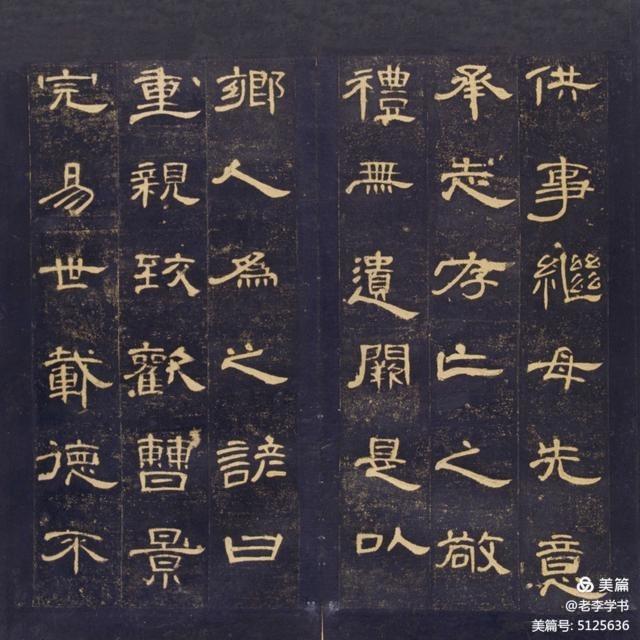 供事繼母先意
承志存亡之敬
禮無遺闕是以
鄉人為之諺曰
重親致歡曹景
完易世載德不
美篇
@老李学书
美篇号: 5125636